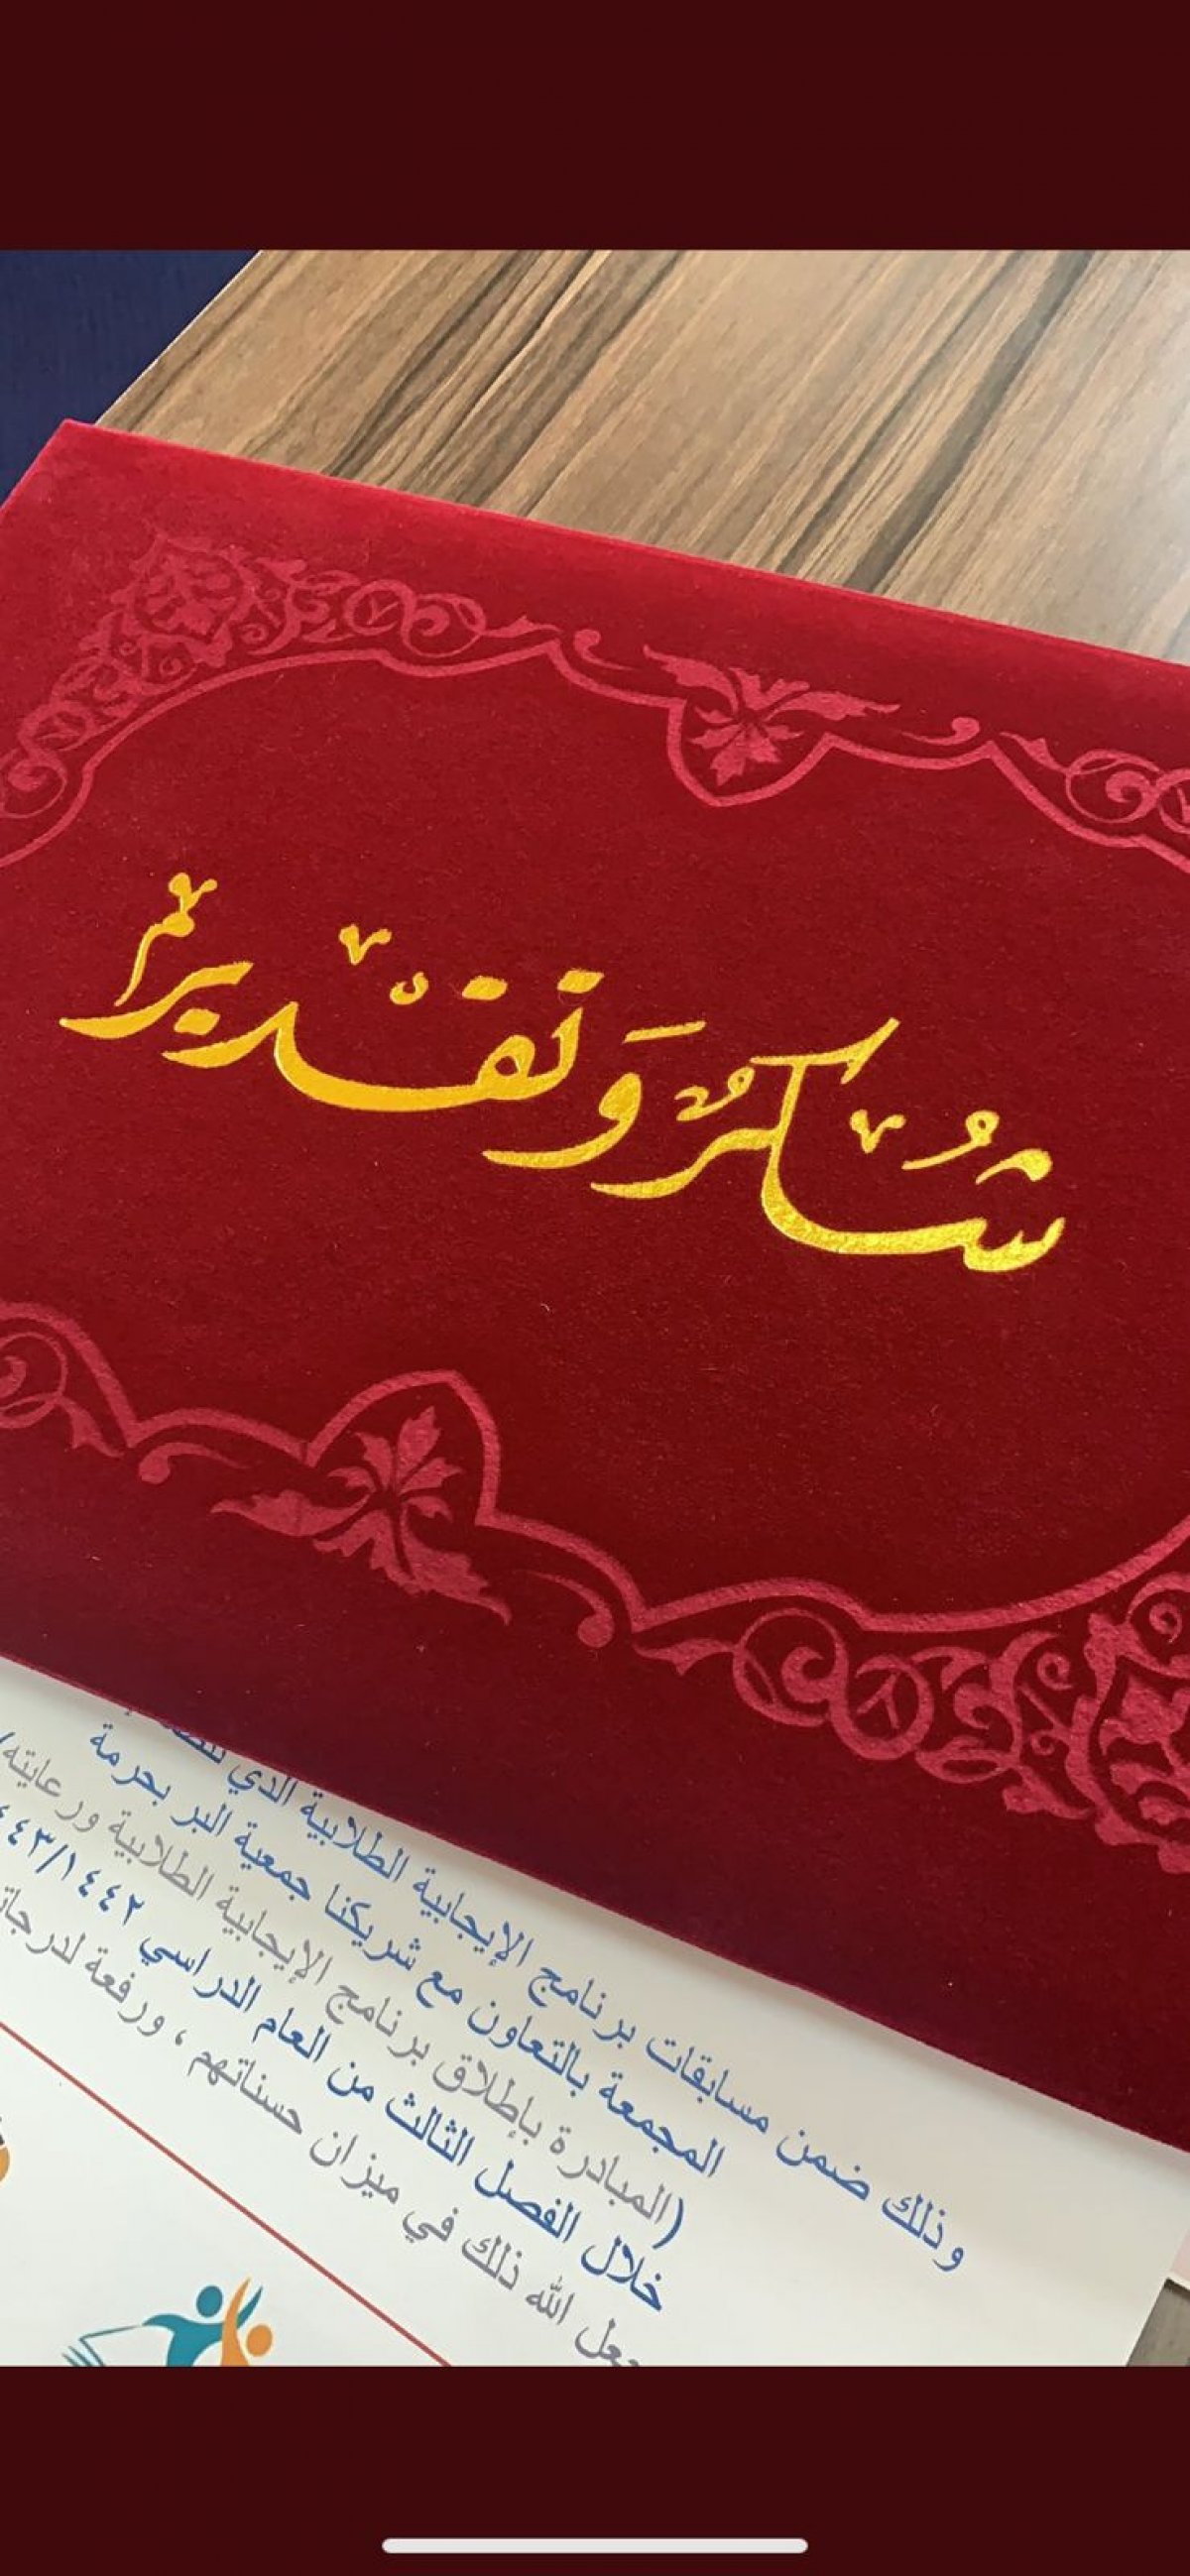 شُكْرٌ وَتَقْدِيرٌ
وذلك ضمن مسابقات برنامج الإيجابية الطلابية الذي
المجمعة بالتعاون مع شريكنا جمعية البر بحرمة
(المبادرة بإطلاق برنامج الإيجابية الطلابية ورعايته/
خلال الفصل الثالث من العام الدراسي ١٤٤٢/
جعل الله ذلك في ميزان حسناتهم ، ورفعة